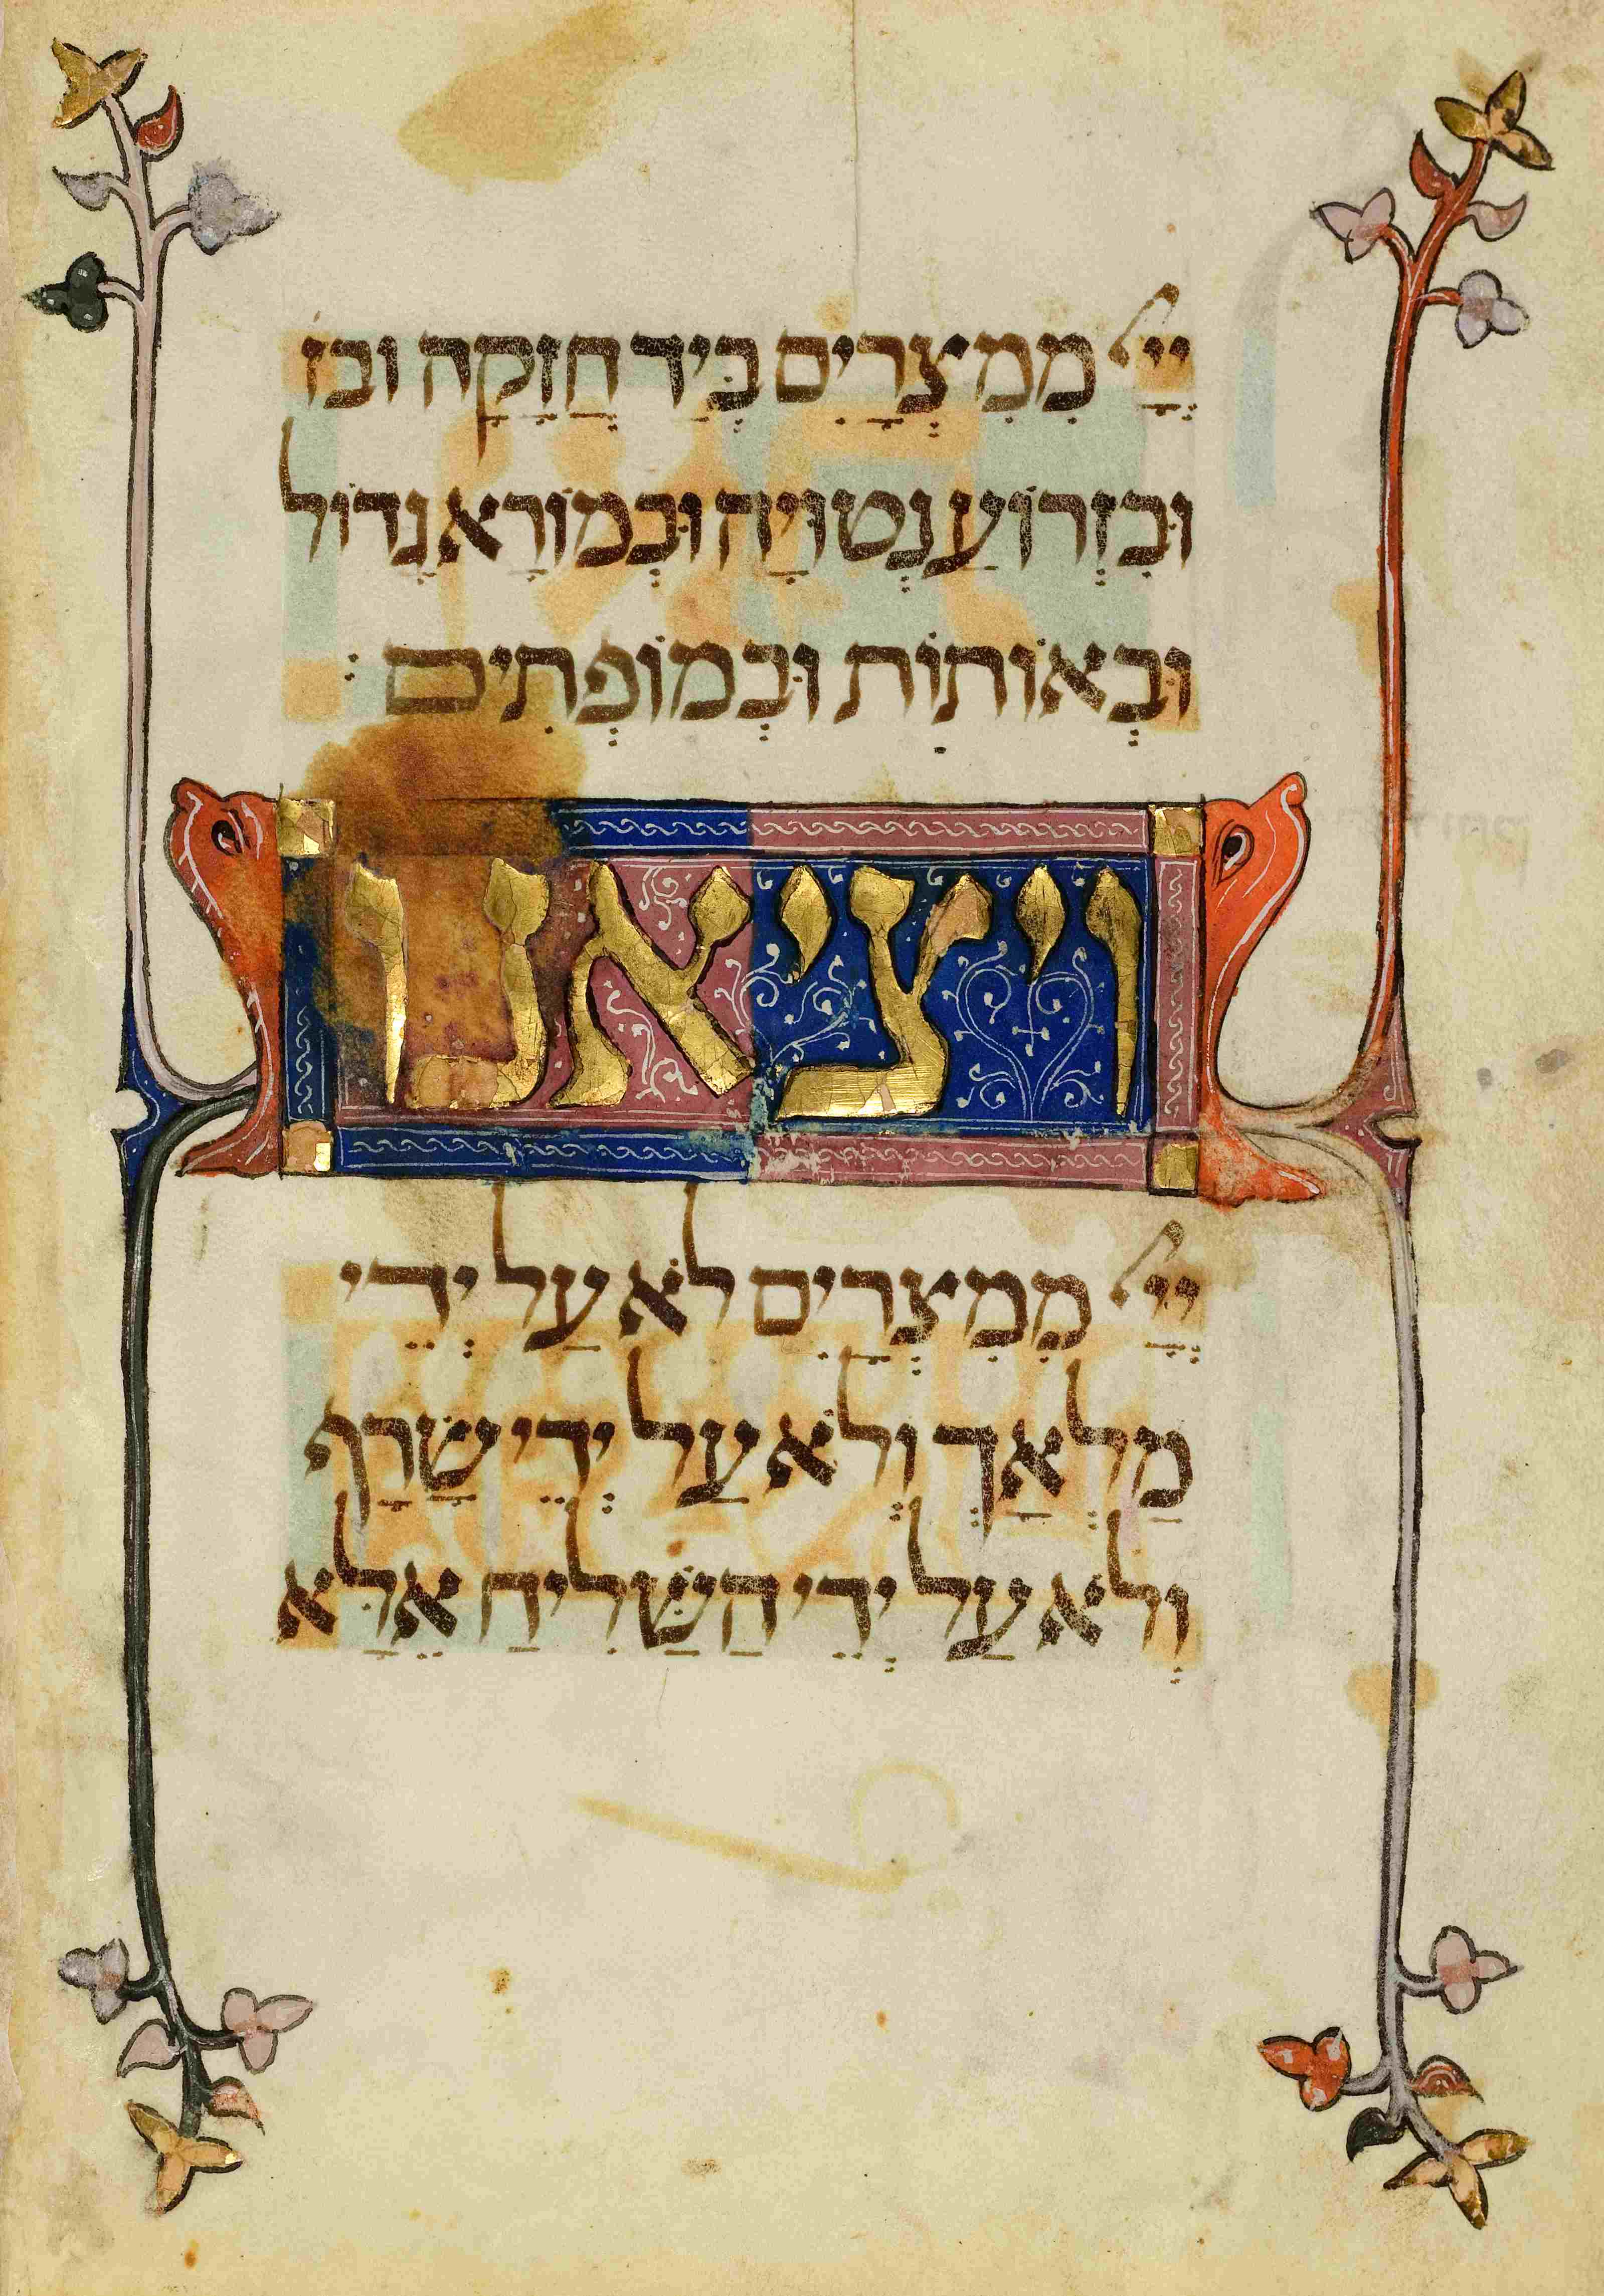 יְיָ מִמִצְרַיִם בְּיַד חֲזָקָה ובז
וּבִזְרוֹעַ נְטוּיָה וּבְמוֹרָא גָדוֹל
וּבְאוֹתוֹת וּבְמוֹפְתִים :
ויציאנו
יְיָ מִמִצְרַיִם לֹא עַל יְדֵי
מַלְאַךְ וְלֹא עַל יְדֵי שָׂרָף
וְלֹא עַל יְדֵי הַשָּׁלִיחַ אֶלָּא